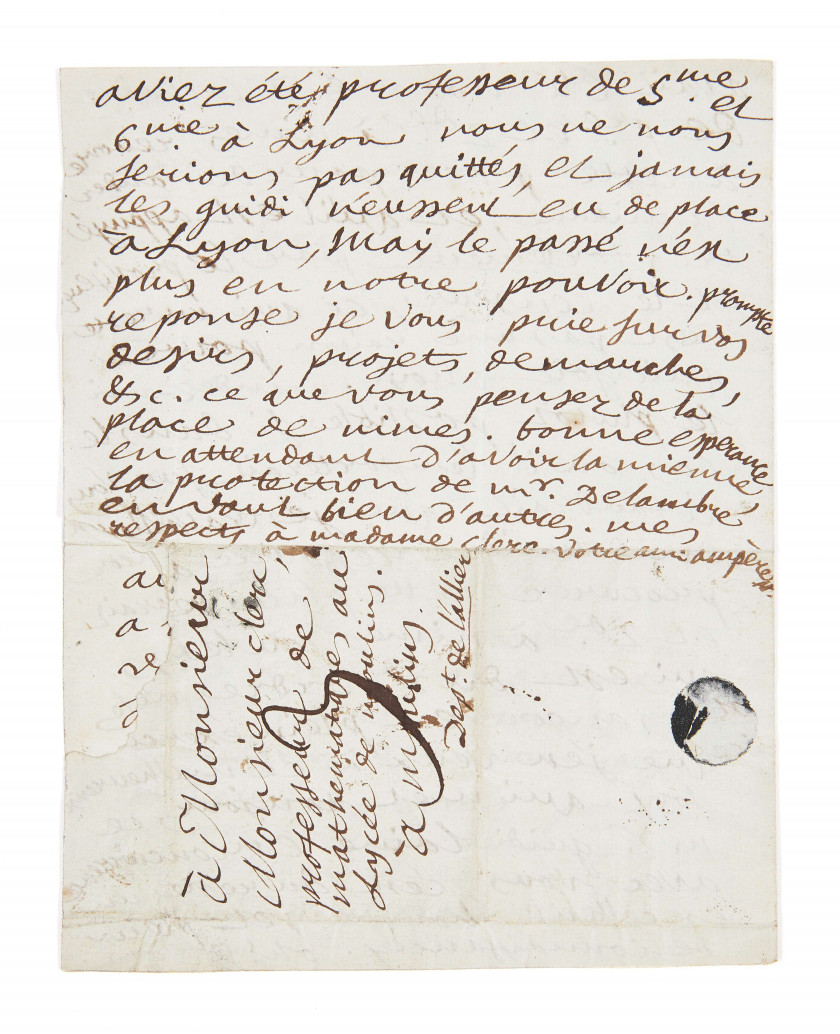 aviez été professeur de 5.me et
6me à Lyon nous ne nous
serions pas quittés, et jamais
les guidi n'eussent eu de place
à Lyon, Mais le passé n'est
plus en notre pouvoir. prompte
reponse je vous prie sur vos
desirs, projets, demarches,
&c. ce que vous pensez de la
place de nimes. bonne esperance
en attendant d'avoir la mienne,
la protection de mr. Delambre
en vaut bien d'autres. mes
respects à madame clerc. votre ami ampère
à Monsieur
Monsieur clerc,
professeur de
mathematiques au
Lycée de moulins.
à moulins.
Dept. de l'allier